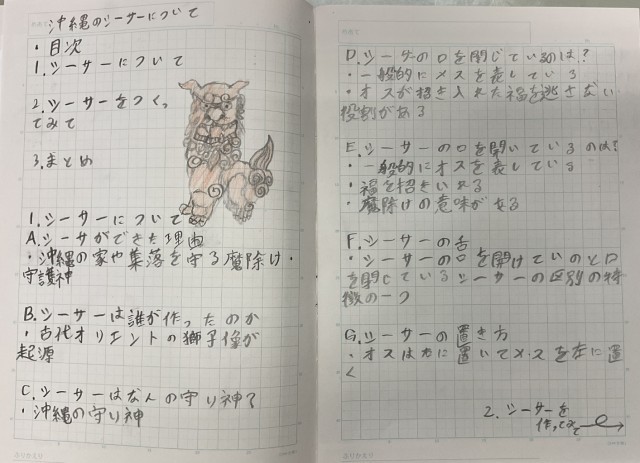 沖縄のシーサーについて
・目次
1.シーサーについて
2.シーサーをつくっ
てみて
3.まとめ
1.シーサーについて
A.シーサができた理由
・沖縄の家や集落を守る魔除け・
守護神
B.シーサーは誰が作ったのか
・古代オリエントの獅子像が
起源
C.シーサーはなんの守り神？
・沖縄の守り神
ふりかえり
D.シーサーの口を閉じているのは？
・一般的にメスを表している
・オスが招き入れた福を逃さない
役割がある
E.シーサーの口を開いているのは？
・一般的にオスを表している
・福を招きいれる
・魔除けの意味がある
F.シーサーの舌
・シーサーの口を開けていのと口
を閉じているシーサーの区別の特
徴の一つ
G.シーサーの置き方
・オスは右に置いてメスを左に置
く
2.シーサーを
作ってみて
ふりかえり